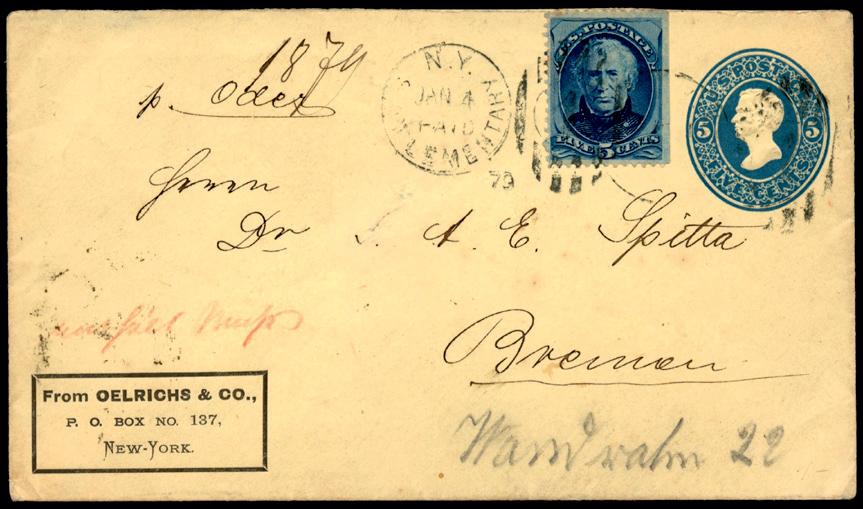 1879
p. Oder
N.Y.
JAN 4
PAID
79
U.S. POSTAGE
FIVE 5 CENTS
U.S. POSTAGE
5 5
FIVE CENTS
Herrn
Dr A. E. Spitta
Bremen
From OELRICHS & CO.,
P. O. BOX NO. 137,
NEW-YORK.
Wandrahm 22